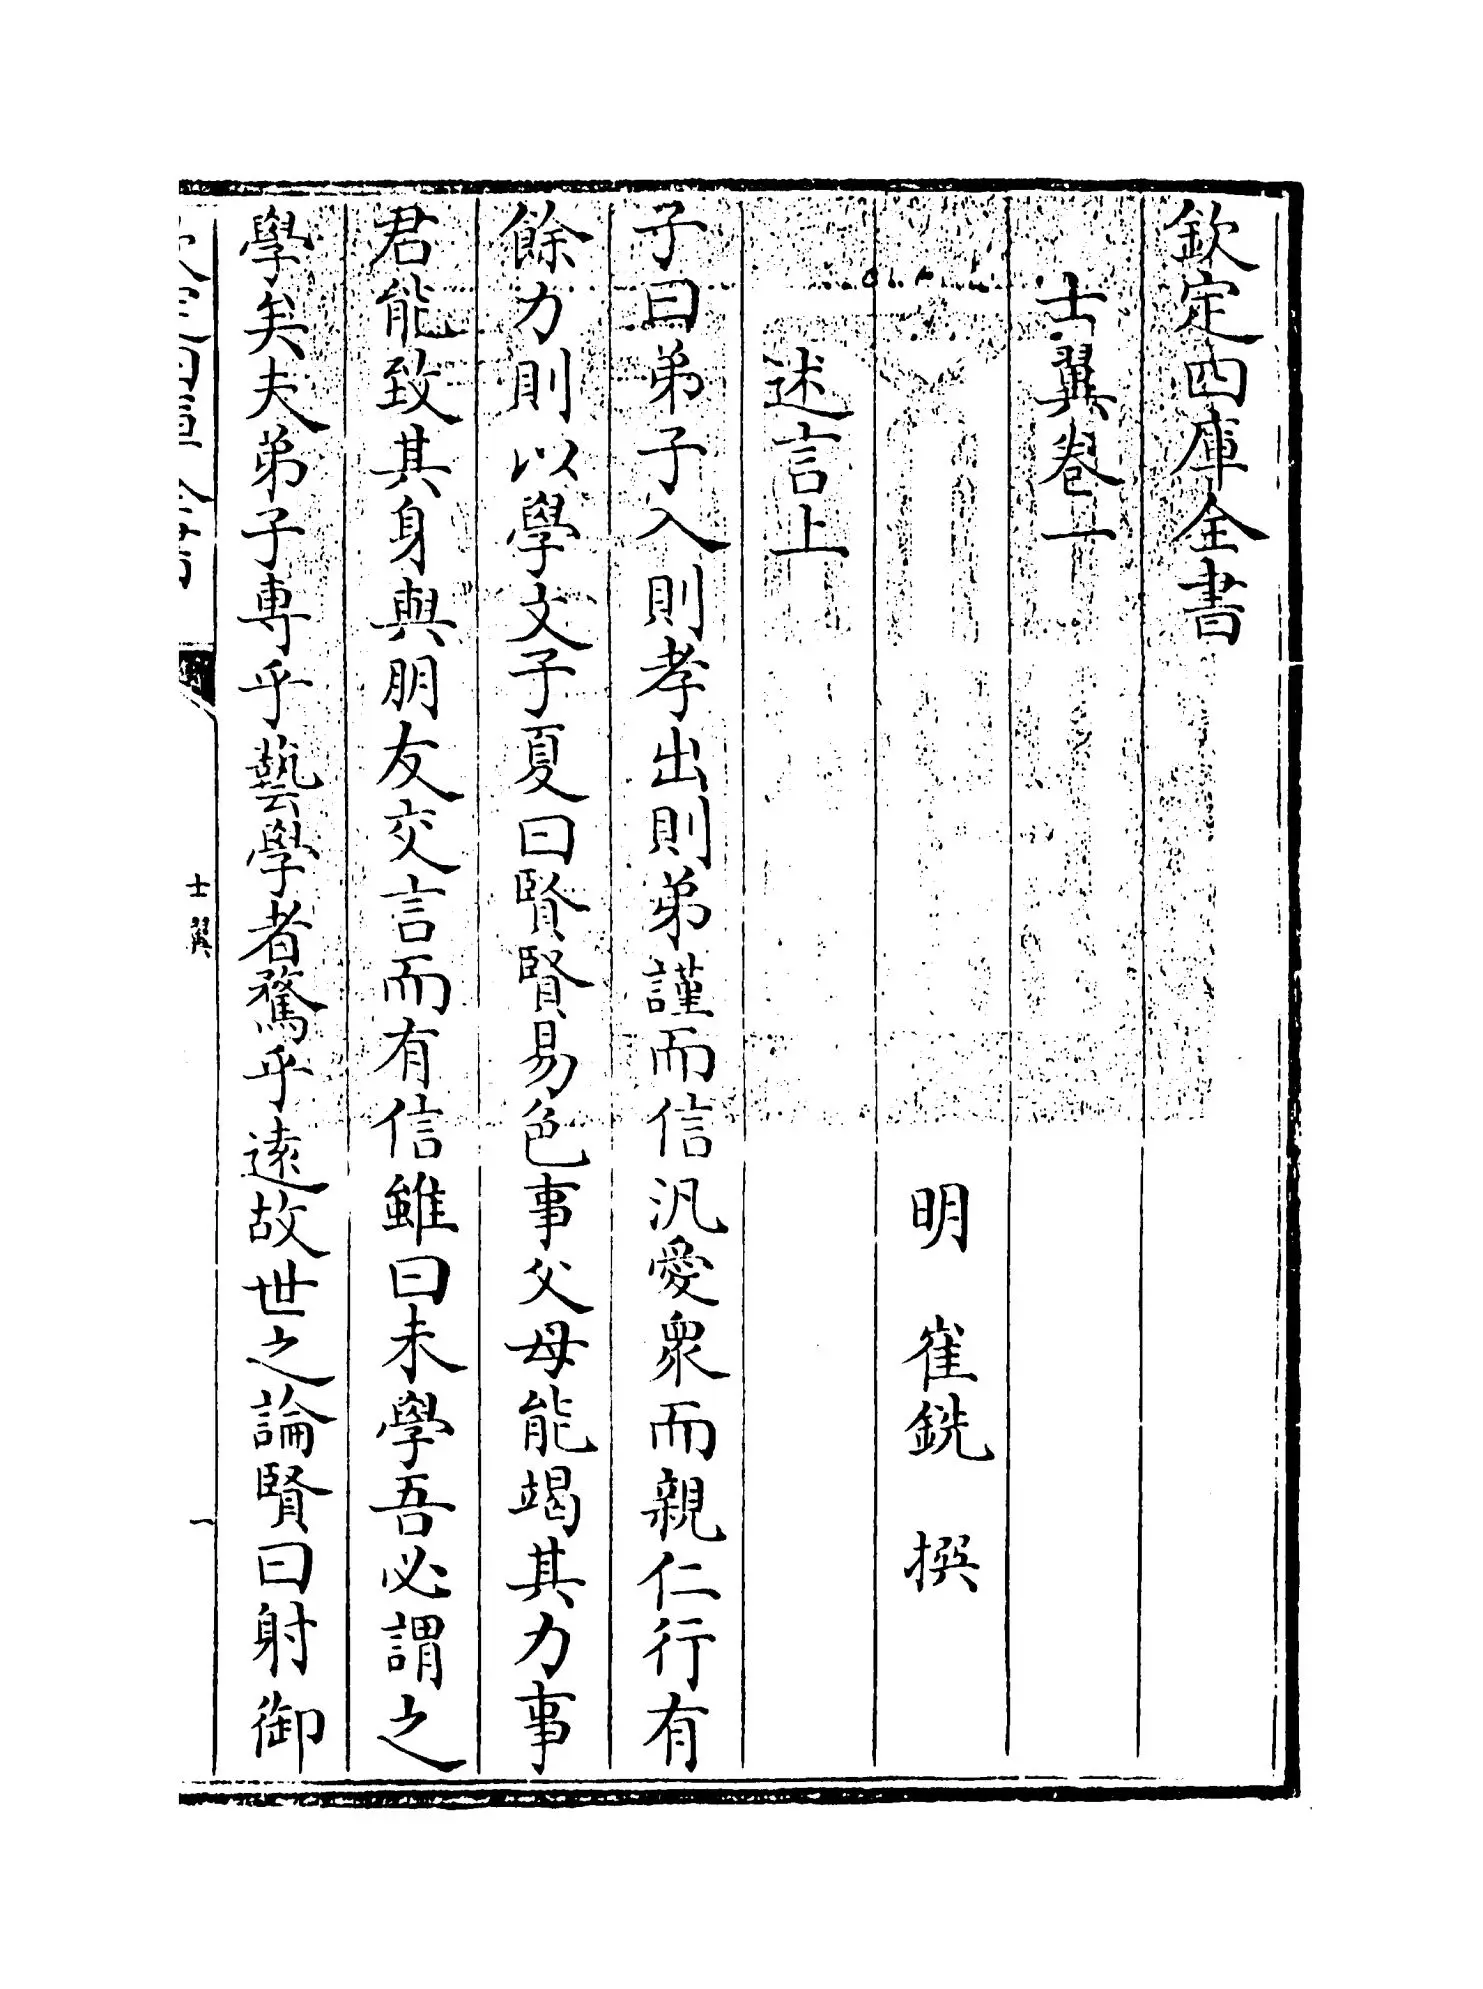 欽定四庫全書
士翼卷一
明 崔銑 撰
述言上
子曰弟子入則孝出則弟謹而信汎愛衆而親仁行有
餘力則以學文子夏曰賢賢易色事父母能竭其力事
君能致其身與朋友交言而有信雖曰未學吾必謂之
學矣夫弟子專乎藝學者騖乎遠故世之論賢曰射御
士翼
一